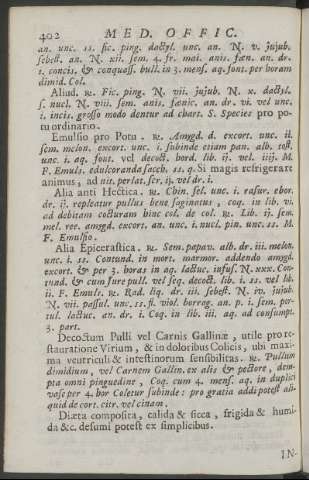 402 MED. OFFIC.
an. unc. ss. fic. ping. dactyl. unc. an. N. v. jujub.
sebest. an. N. xii. sem. 4. fr. mai. anis. fœn. an. dr.
i. concis. & conquass. bull. in 3. mens. aq. font. per horam
dimid. Col.
Aliud. ℞. Fic. ping. N. vii. jujub. N. x. dactyl.
s. nucl. N. viii. sem. anis. fœnic. an. dr. vi. vel unc.
i. incis. grosso modo dentur ad chart. S. Species pro po-
tu ordinario.
Emulsio pro Potu. ℞. Amygd. d. excort. unc. ii.
sem. melon. excort. unc. i. subinde etiam pan. alb. tost.
unc. i. aq. font. vel decoct. hord. lib. ij. vel. iiij. M.
F. Emuls. edulcoranda sacch. ss. q. Si magis refrigerare
animus, ad nit. perlat. scr. ij. vel dr. i.
Alia anti Hectica. ℞. Chin. sel. unc. i. rasur. ebor.
dr. ij. repleatur pullus bene saginatus, coq. in lib. vi.
ad debitam cocturam hinc col. de col. ℞. Lib. ij. sem.
mel. ree. amygd. excort. an. unc. i. nucl. pin. unc. ss. M.
F. Emulsio.
Alia Epicerastica. ℞. Sem. papav. alb. dr. iii. melon.
unc. i. ss. Contund. in mort. marmor. addendo amygd.
excort. & per 3. horas in aq. lactuc. infus. N. xxx. Con-
tund. & cum Jure pull. vel seq. decoct. lib. i. ss. vel lib.
ii. F. Emuls. ℞. Rad. liq. dr. iii. sebest. N. iv. jujub.
N. vii. passul. unc. ss. fl. viol. borrag. an. p. i. sem. por-
tul. lactuc. an. dr. i. Coq. in lib. iii. aq. ad consumpt.
3. part.
Decoctum Pulli vel Carnis Gallinæ, utile pro re-
stauratione Virium, & in doloribus Colicis, ubi maxi-
ma ventriculi & intestinorum sensibilitas. ℞. Pullum
dimidium, vel Carnem Gallin. ex alis & pectore, dem-
pta omni pinguedine, Coq. cum 4. mens. aq. in duplici
vase per 4. hor Coletur subinde: pro gratia addi potest ali-
quid de cort. citr. vel cinam.
Diæta composita, calida & sicca, frigida & humi-
da &c. desumi potest ex simplicibus.
IN-